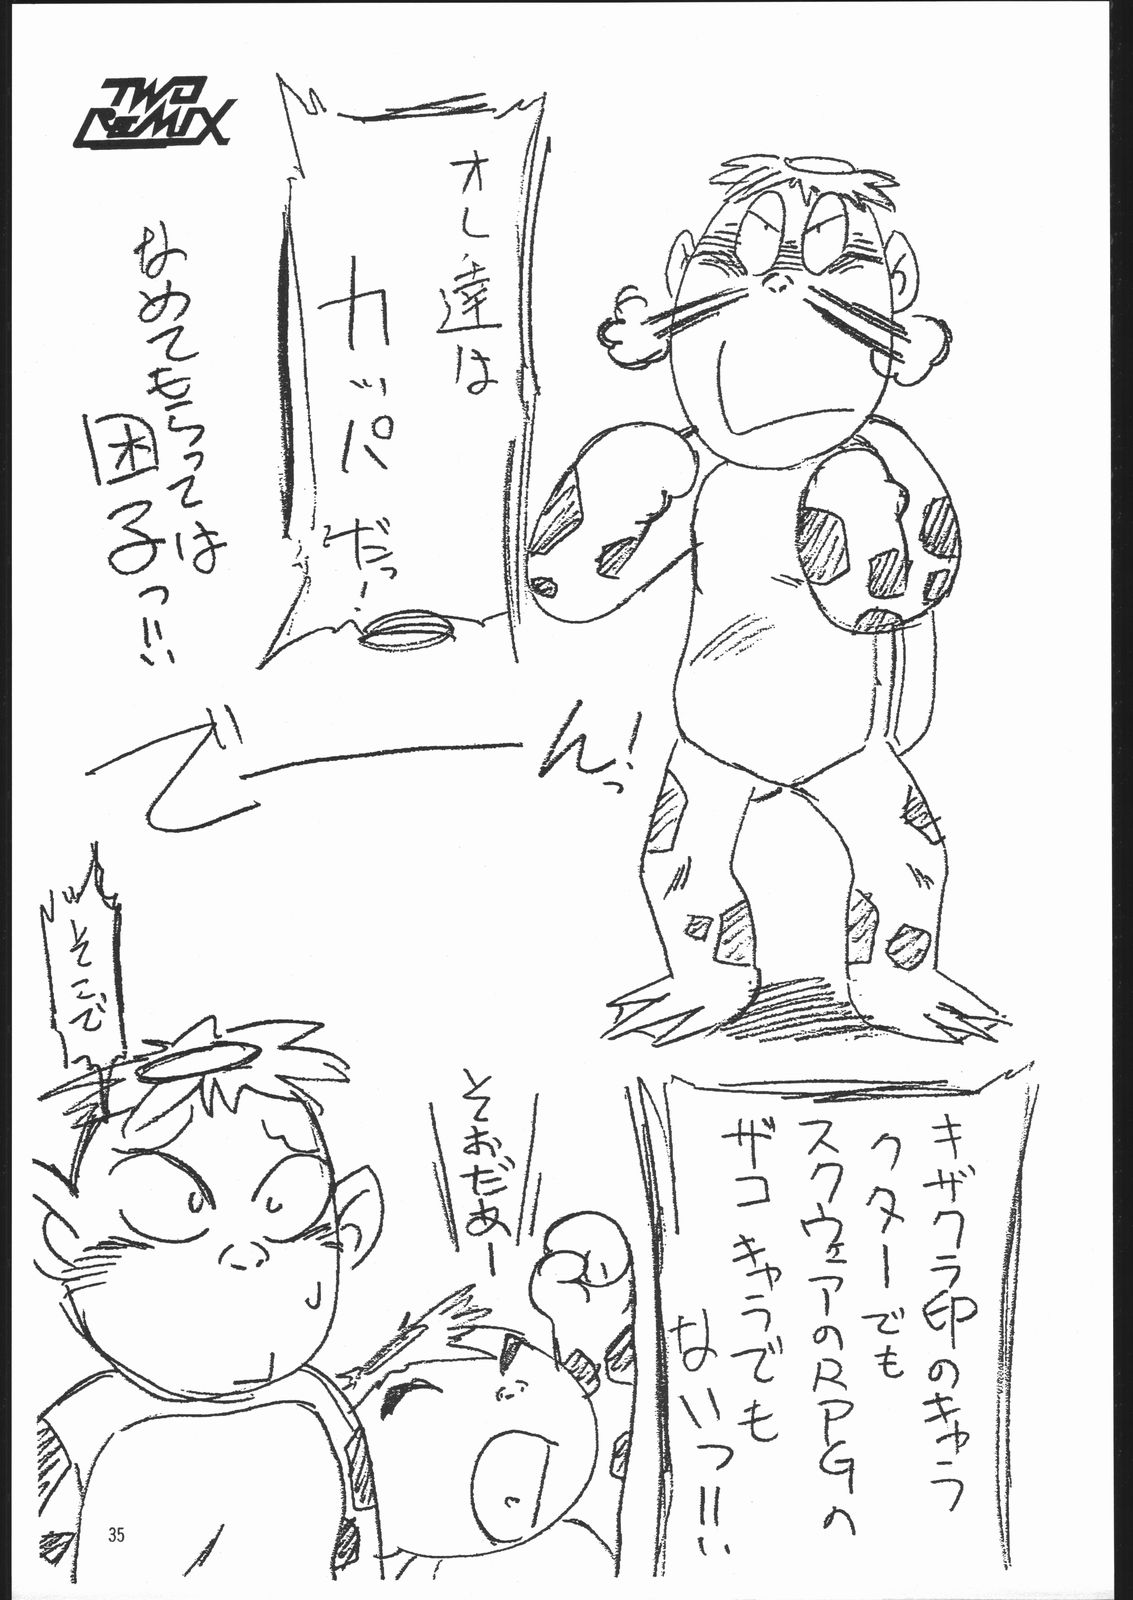 TWO
REMIX
オレ達は
カッパだっ!
なめてもらっては
困子っ!!
でーん!っ
キザクラ印のキャラ
クターでも
スクウェアのRPGの
ザコキャラでも
ないっ!!
そおだぁー
そこで
35